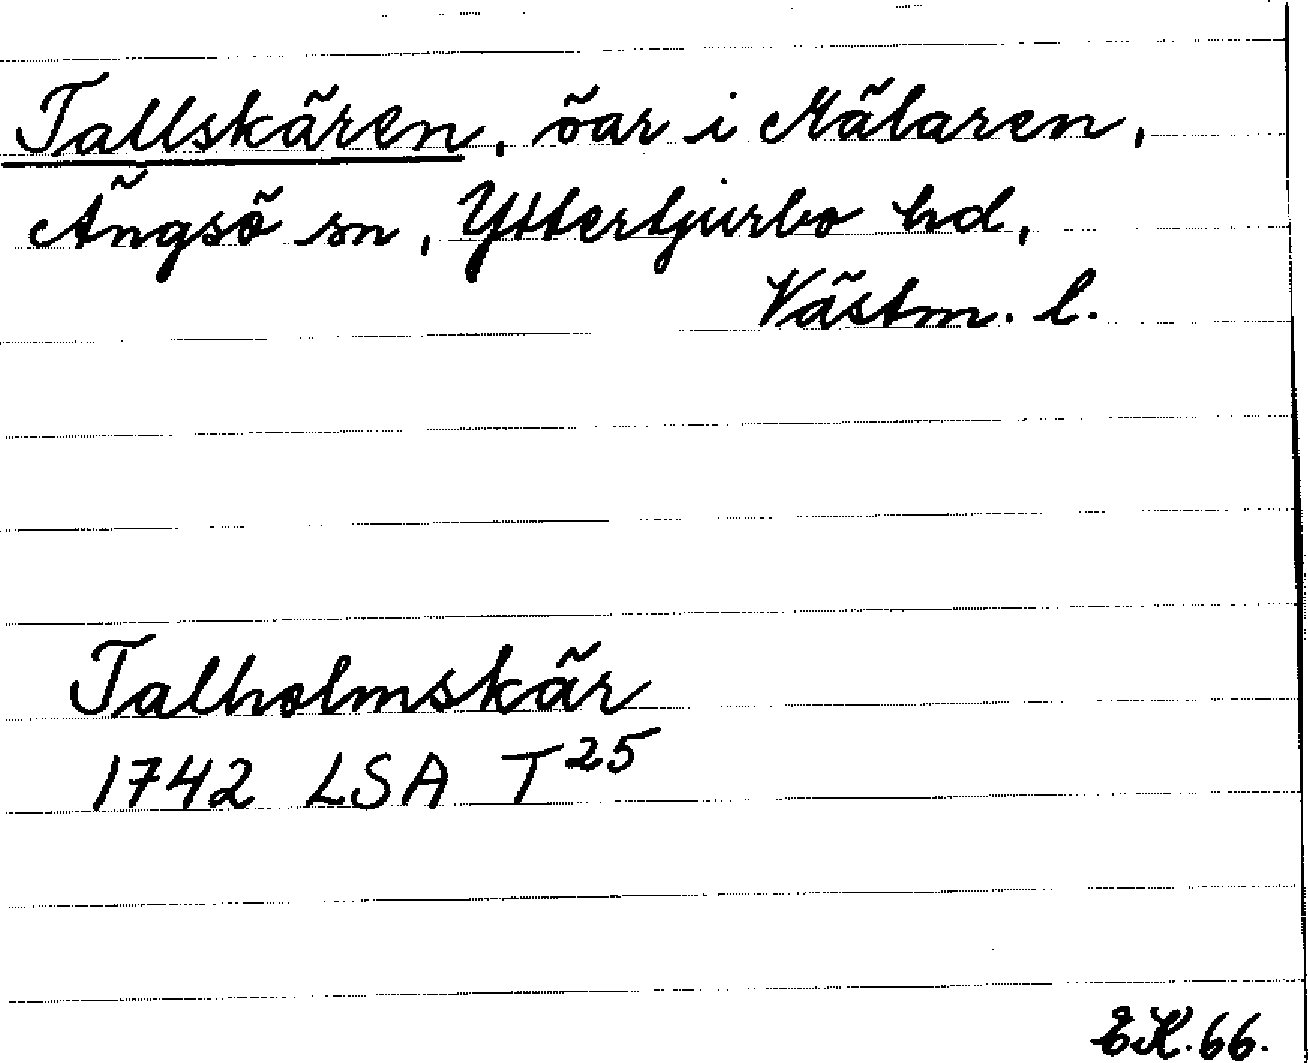 Tallskären, öar i Mälaren,
Ängsö sn, Yttertjurbo hd,
Västm. l.
Talholmskär
1742 LSA T²⁵
EK.66.